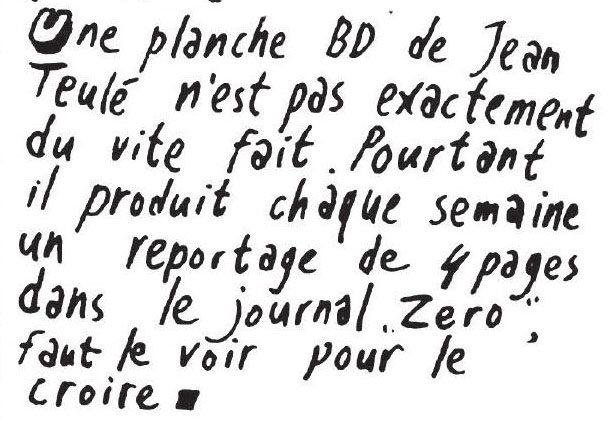 Une planche BD de Jean
Teulé n'est pas exactement
du vite fait. Pourtant
il produit chaque semaine
un reportage de 4 pages
dans le journal „Zero“,
faut le voir pour le
croire ■